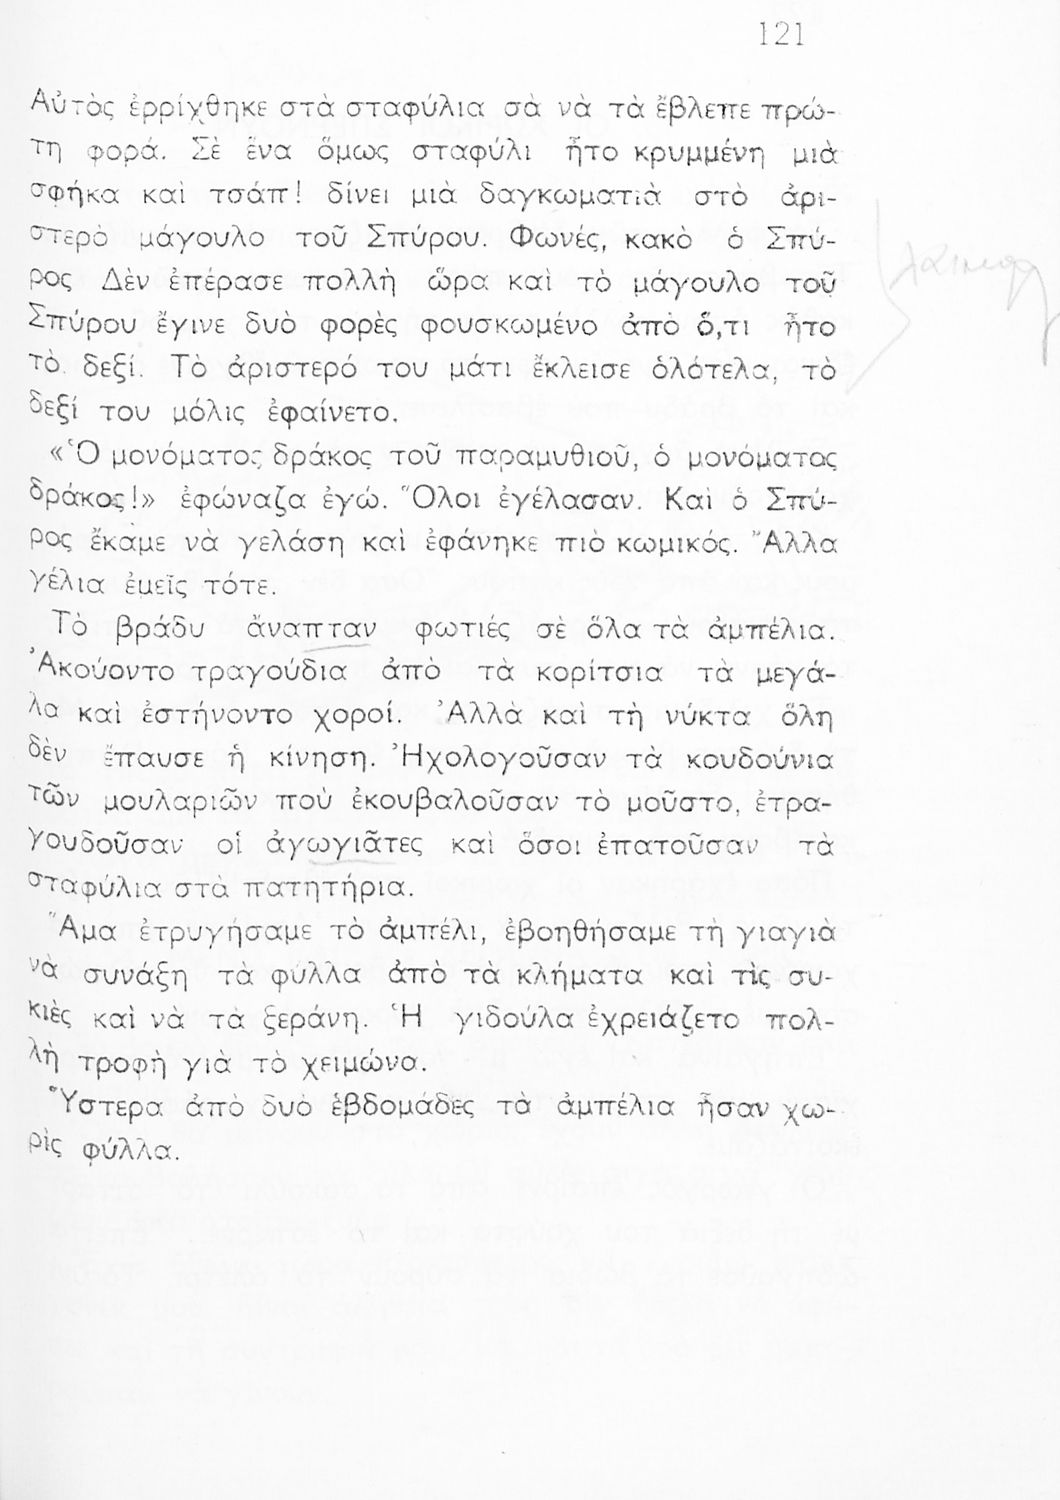 121
Αὐτὸς ἐρρίχθηκε στὰ σταφύλια σὰ νὰ τὰ ἔβλεπε πρώ-
τη φορά. Σὲ ἕνα ὅμως σταφύλι ἦτο κρυμμένη μιὰ
σφήκα καὶ τσάπ! δίνει μιὰ δαγκωματιὰ στὸ ἀρι-
στερὸ μάγουλο τοῦ Σπύρου. Φωνές, κακὸ ὁ Σπύ-
ρος Δὲν ἐπέρασε πολλὴ ὥρα καὶ τὸ μάγουλο τοῦ
Σπύρου ἔγινε δυὸ φορὲς φουσκωμένο ἀπὸ ὅ,τι ἦτο
τὸ δεξί. Τὸ ἀριστερό του μάτι ἔκλεισε ὁλότελα, τὸ
δεξί του μόλις ἐφαίνετο.
«Ὁ μονόματος δράκος τοῦ παραμυθιοῦ, ὁ μονόματος
δράκος!» ἐφώναζα ἐγώ. Ὅλοι ἐγέλασαν. Καὶ ὁ Σπύ-
ρος ἔκαμε νὰ γελάση καὶ ἐφάνηκε πιὸ κωμικός. Ἄλλα
γέλια ἐμεῖς τότε.
Τὸ βράδυ ἄναπταν φωτιές σὲ ὅλα τὰ ἀμπέλια.
Ἀκούοντο τραγούδια ἀπὸ τὰ κορίτσια τὰ μεγά-
λα καὶ ἐστήνοντο χοροί. Ἀλλὰ καὶ τὴ νύκτα ὅλη
δὲν ἔπαυσε ἡ κίνηση. Ἠχολογοῦσαν τὰ κουδούνια
τῶν μουλαριῶν ποὺ ἐκουβαλοῦσαν τὸ μοῦστο, ἐτρα-
γουδοῦσαν οἱ ἀγωγιᾶτες καὶ ὅσοι ἐπατοῦσαν τὰ
σταφύλια στὰ πατητήρια.
Ἅμα ἐτρυγήσαμε τὸ ἀμπέλι, ἐβοηθήσαμε τὴ γιαγιὰ
νὰ συνάξη τὰ φύλλα ἀπὸ τὰ κλήματα καὶ τὶς συ-
κιὲς καὶ νὰ τὰ ξεράνη. Ἡ γιδούλα ἐχρειάζετο πολ-
λὴ τροφὴ γιὰ τὸ χειμώνα.
Ὕστερα ἀπὸ δυὸ ἑβδομάδες τὰ ἀμπέλια ἦσαν χω-
ρὶς φύλλα.